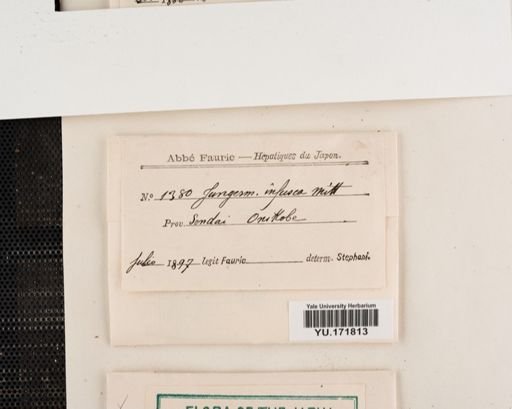 Abbé Faurie — Hepatiques du Japon.
No 1380 Jungerm. infusca Mitt
Prov. Sendai Onikobe
julio 1897 legit Faurie determ. Stephani.
Yale University Herbarium
YU.171813